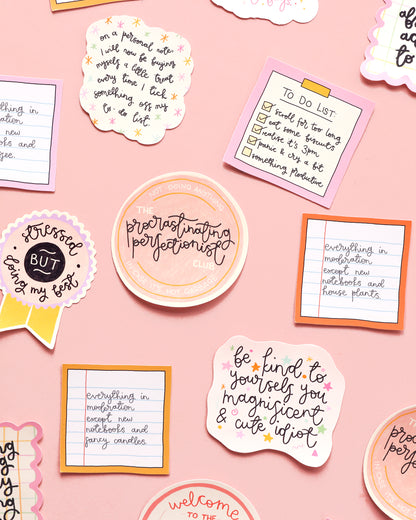 on a personal note
I will now be buying
myself a little treat
every time I tick
something off my
to-do list
TO DO LIST:
scroll for too long
eat some biscuits
realise it's 3pm
panic & cry a bit
something productive
everything in
moderation
new
notebooks and
NOT DOING ANYTHING
THE
procrastinating
perfectionist
CLUB
stressed
BUT
doing my best
everything in
moderation
except new
notebooks and
house plants.
be kind to
yourself you
magnificent
& cute idiot
everything in
moderation
except new
notebooks and
fancy candles.
welcome
TO THE
THE